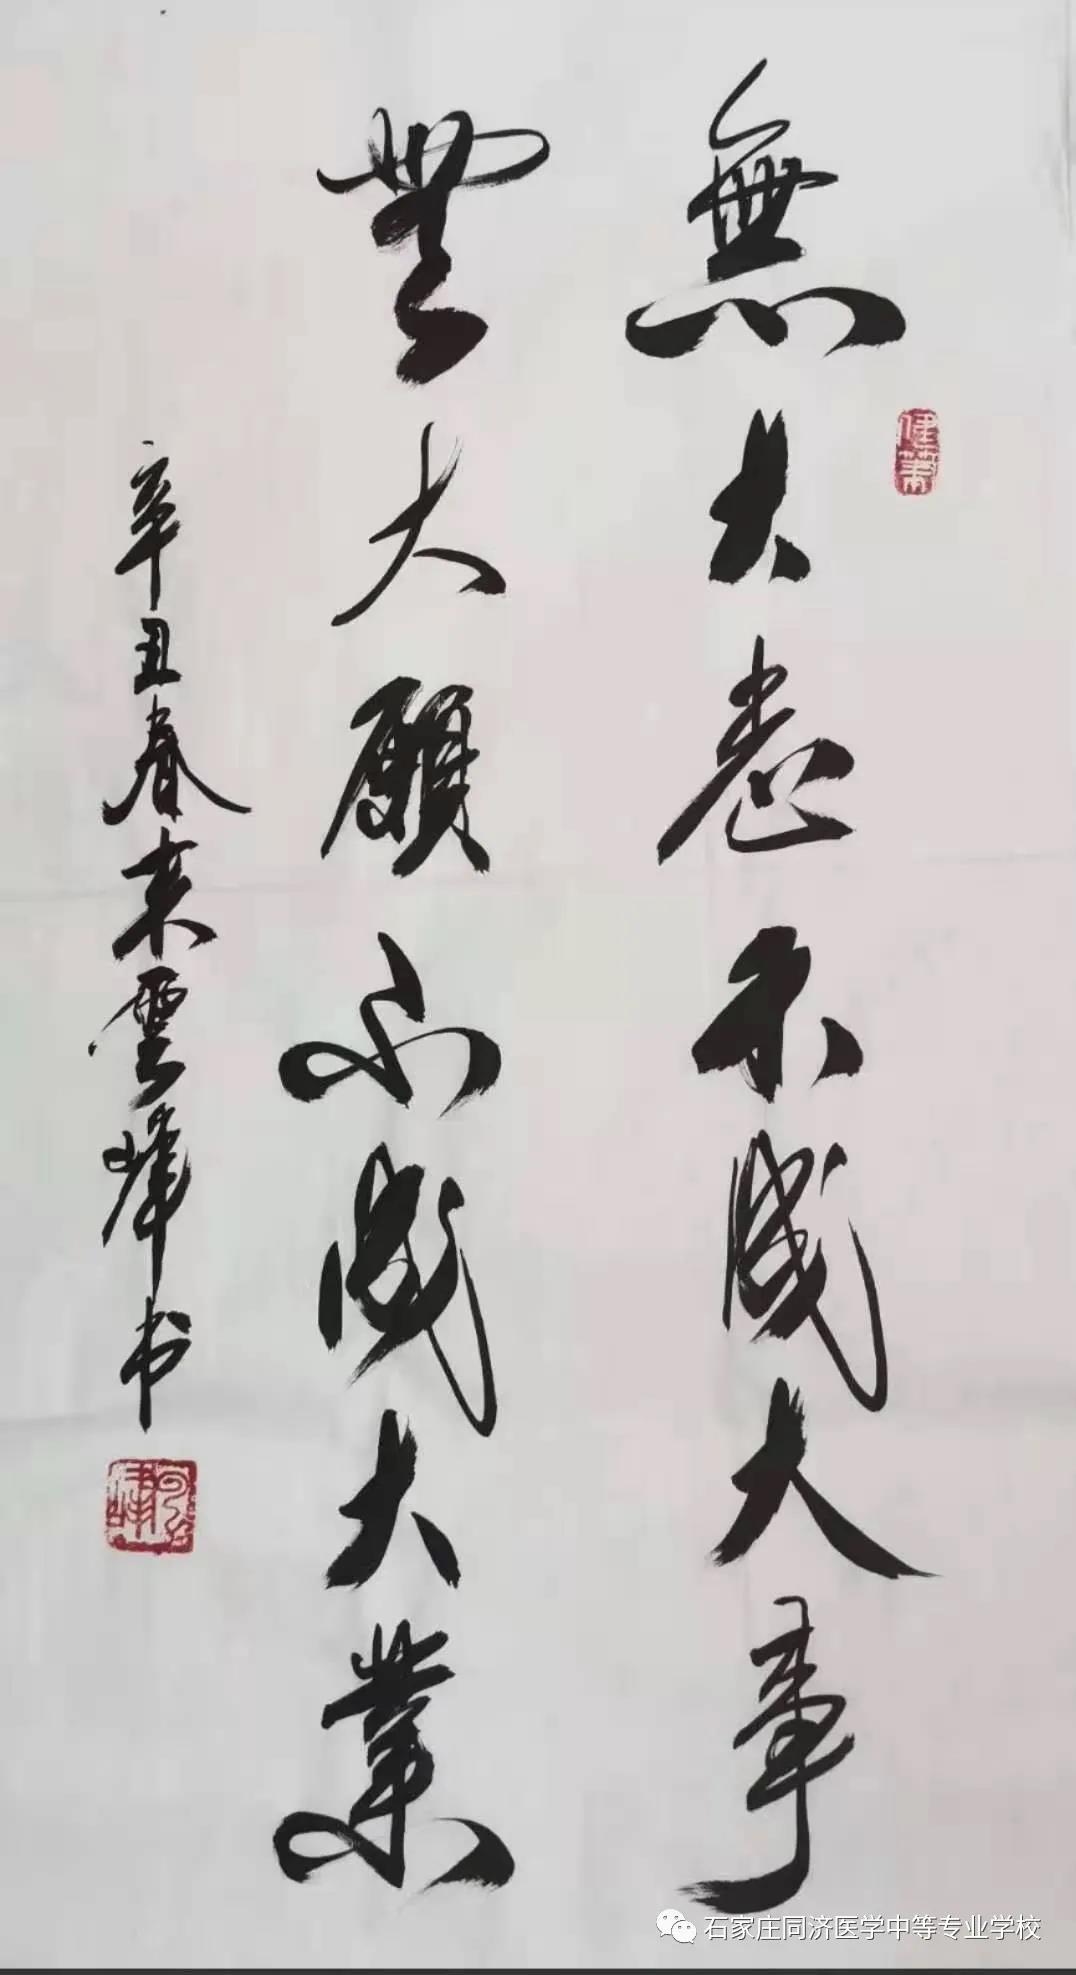 無大不成大事
無大願不成大業
辛丑春来雲峰书
石家庄同济医学中等专业学校